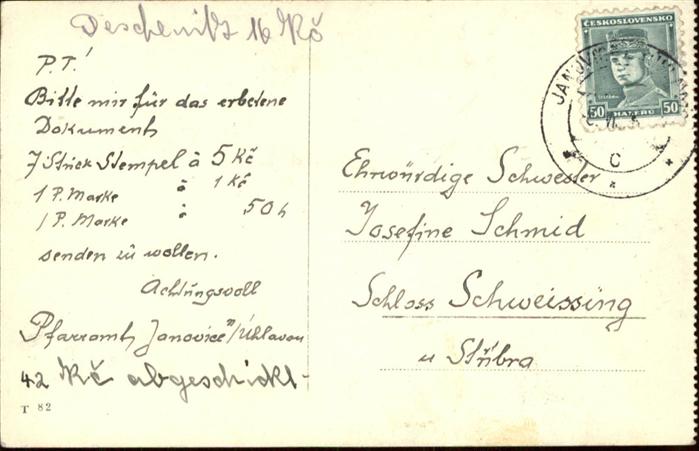 Deschenitz 16 Kč
P.T.!
Bitte mir für das erbetene
Dokument
7 Stück Stempel à 5 Kč
1 P. Marke à 1 Kč
1 P. Marke à 50 h
senden zu wollen.
Achtungsvoll
Pfarramt Janovice n/Úhlavou
42 Kč abgeschickt
T 82
ČESKOSLOVENSKO
50 50
HALÉŘŮ
C
Ehrwürdige Schwester
Josefine Schmid
Schloss Schweissing
u Stříbra